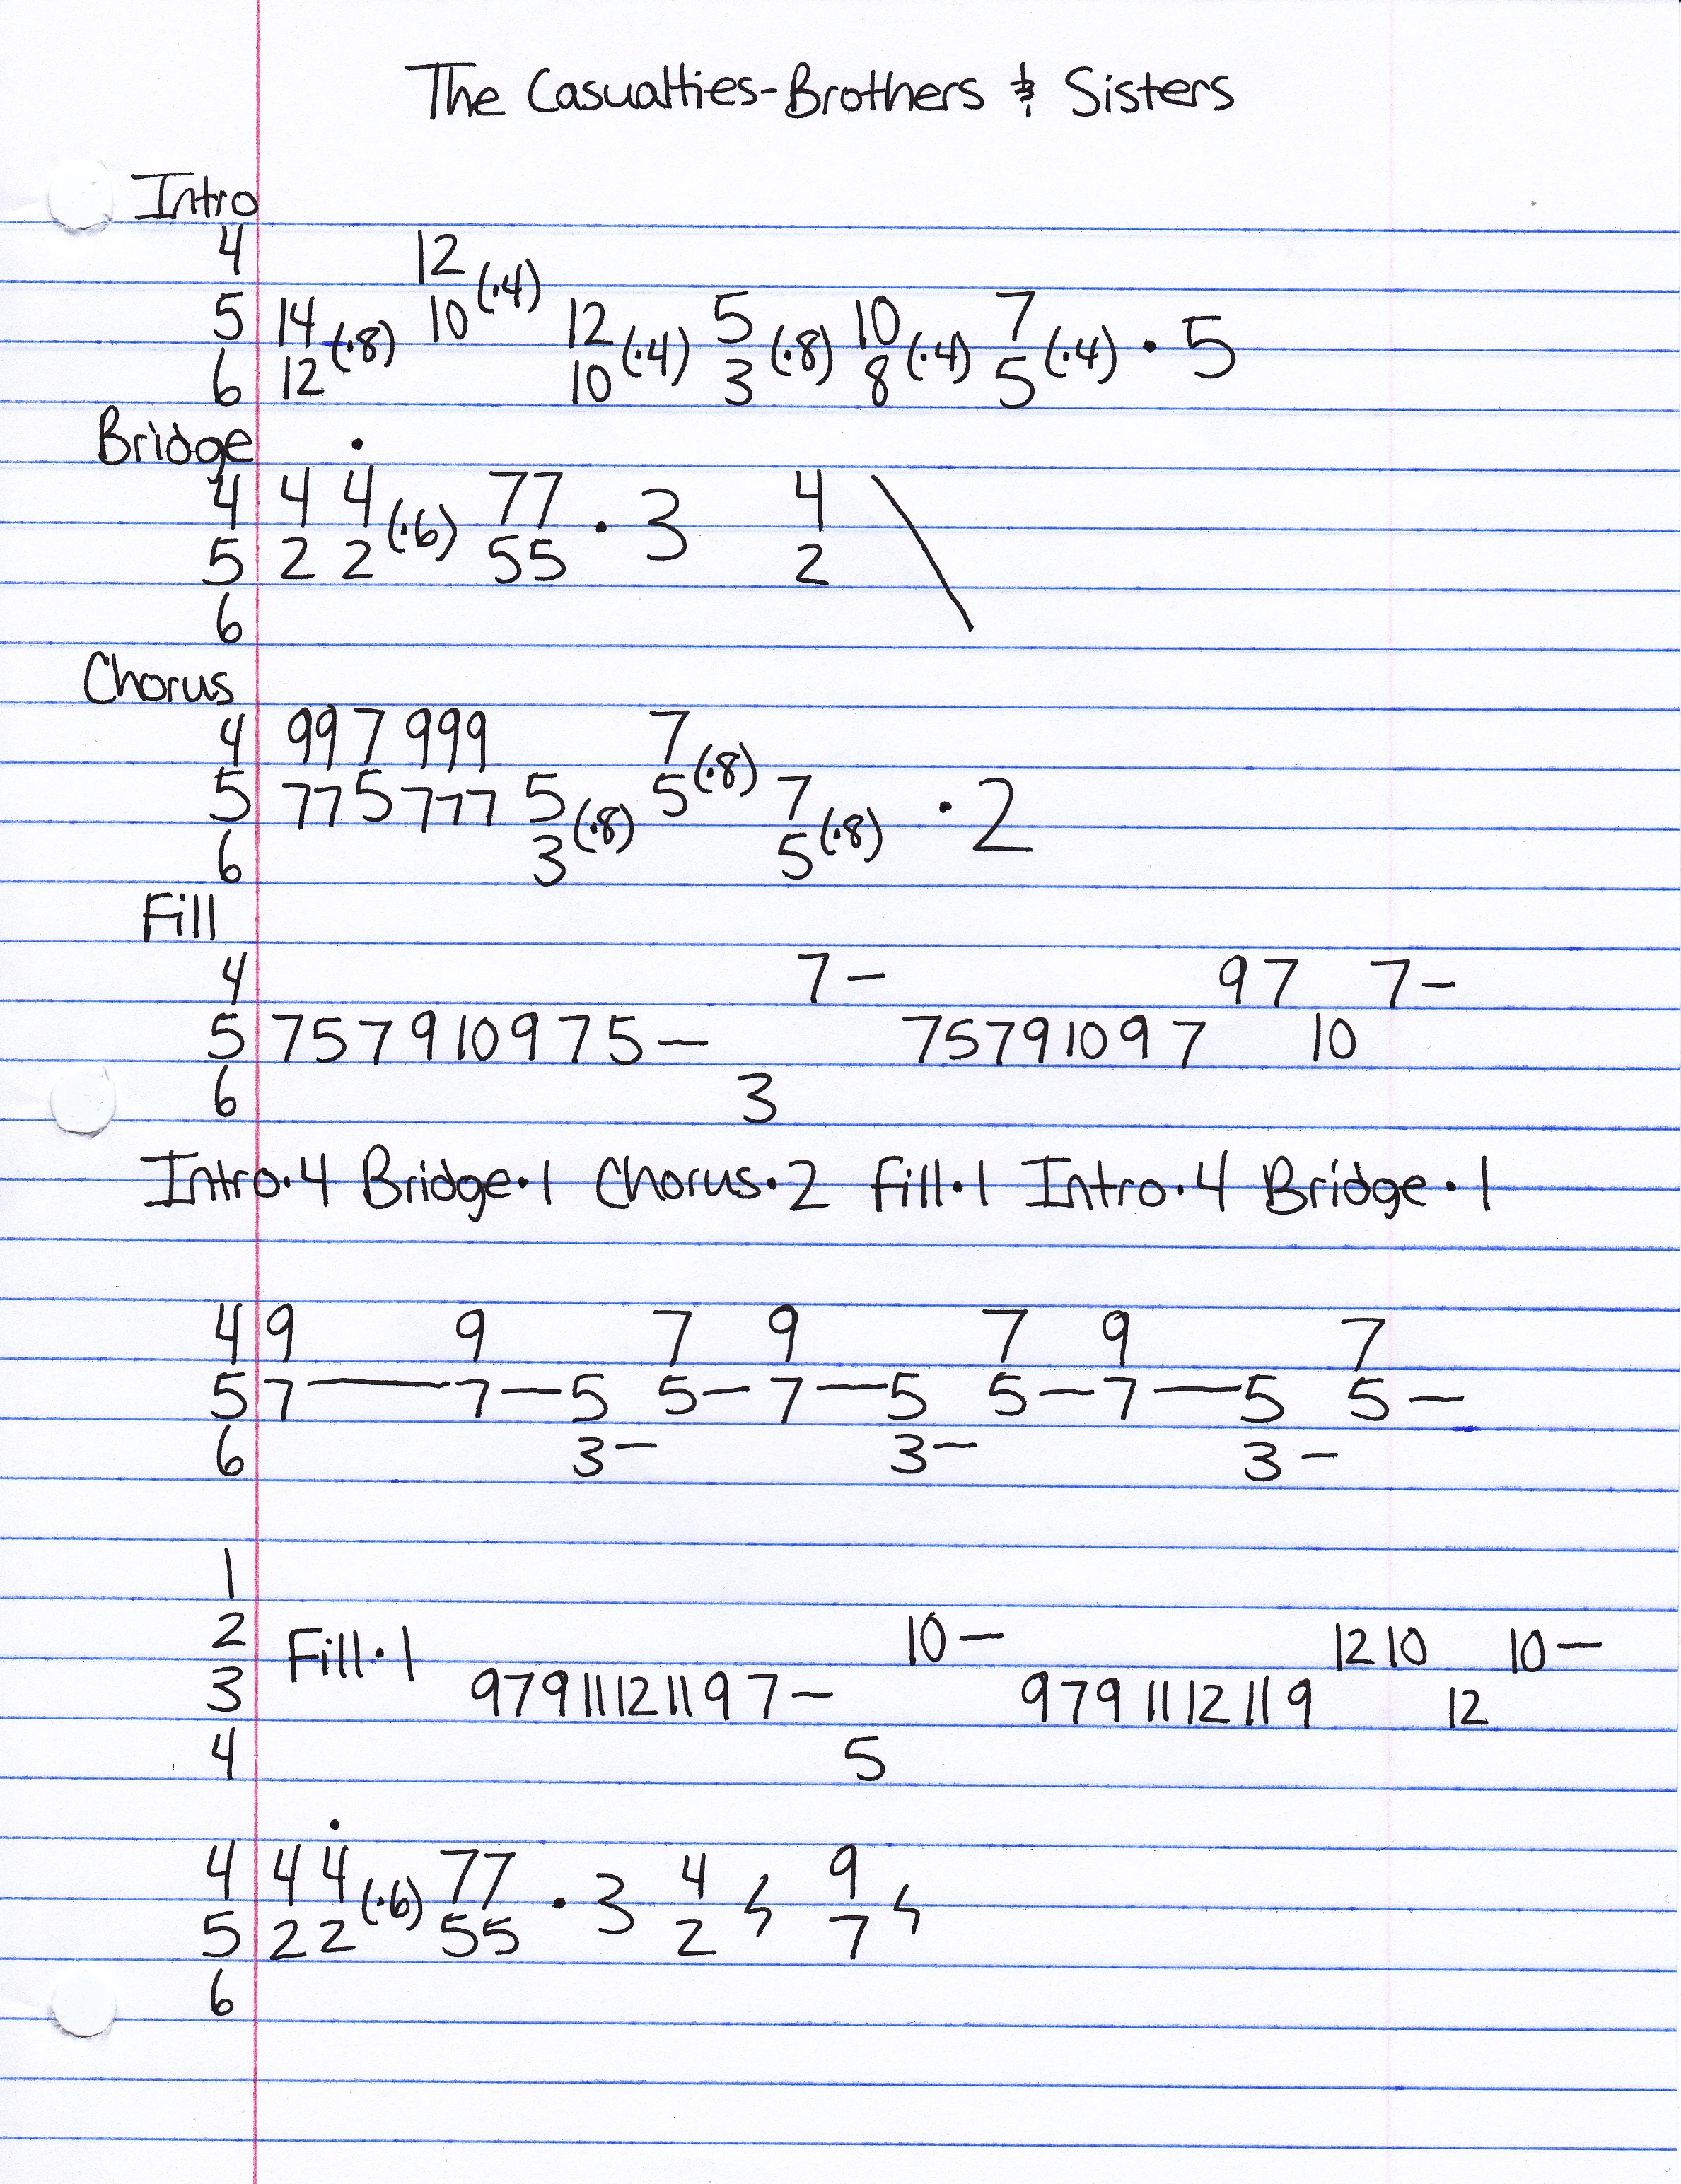 The Casualties-Brothers & Sisters
Intro
4 12
5 14 (·8) 10 (·4) 12 (·4) 5 (·8) 10 (·4) 7 (·4) · 5
6 12 10 3 8 5
Bridge
4 4 4 (·6) 77 · 3 4 \
5 2 2 55 2
6
Chorus
4 99 7 999 7 (·8)
5 77 5 777 5 (·8) 5 7 (·8) · 2
6 3 5
Fill
4 7 – 9 7 7 –
5 7 5 7 9 10 9 7 5 — 7 5 7 9 10 9 7 10
6 3
Intro·4 Bridge·1 Chorus·2 Fill·1 Intro·4 Bridge·1
4 9 9 7 9 7 9 7
5 7 — 7 — 5 5 – 7 — 5 5 – 7 — 5 5 –
6 3 – 3 – 3 –
1
2 Fill·1 10 – 12 10 10 –
3 9 7 9 11 12 11 9 7 – 9 7 9 11 12 11 9 12
4 5
4 4 4 (·6) 77 · 3 4 9
5 2 2 55 2 7
6